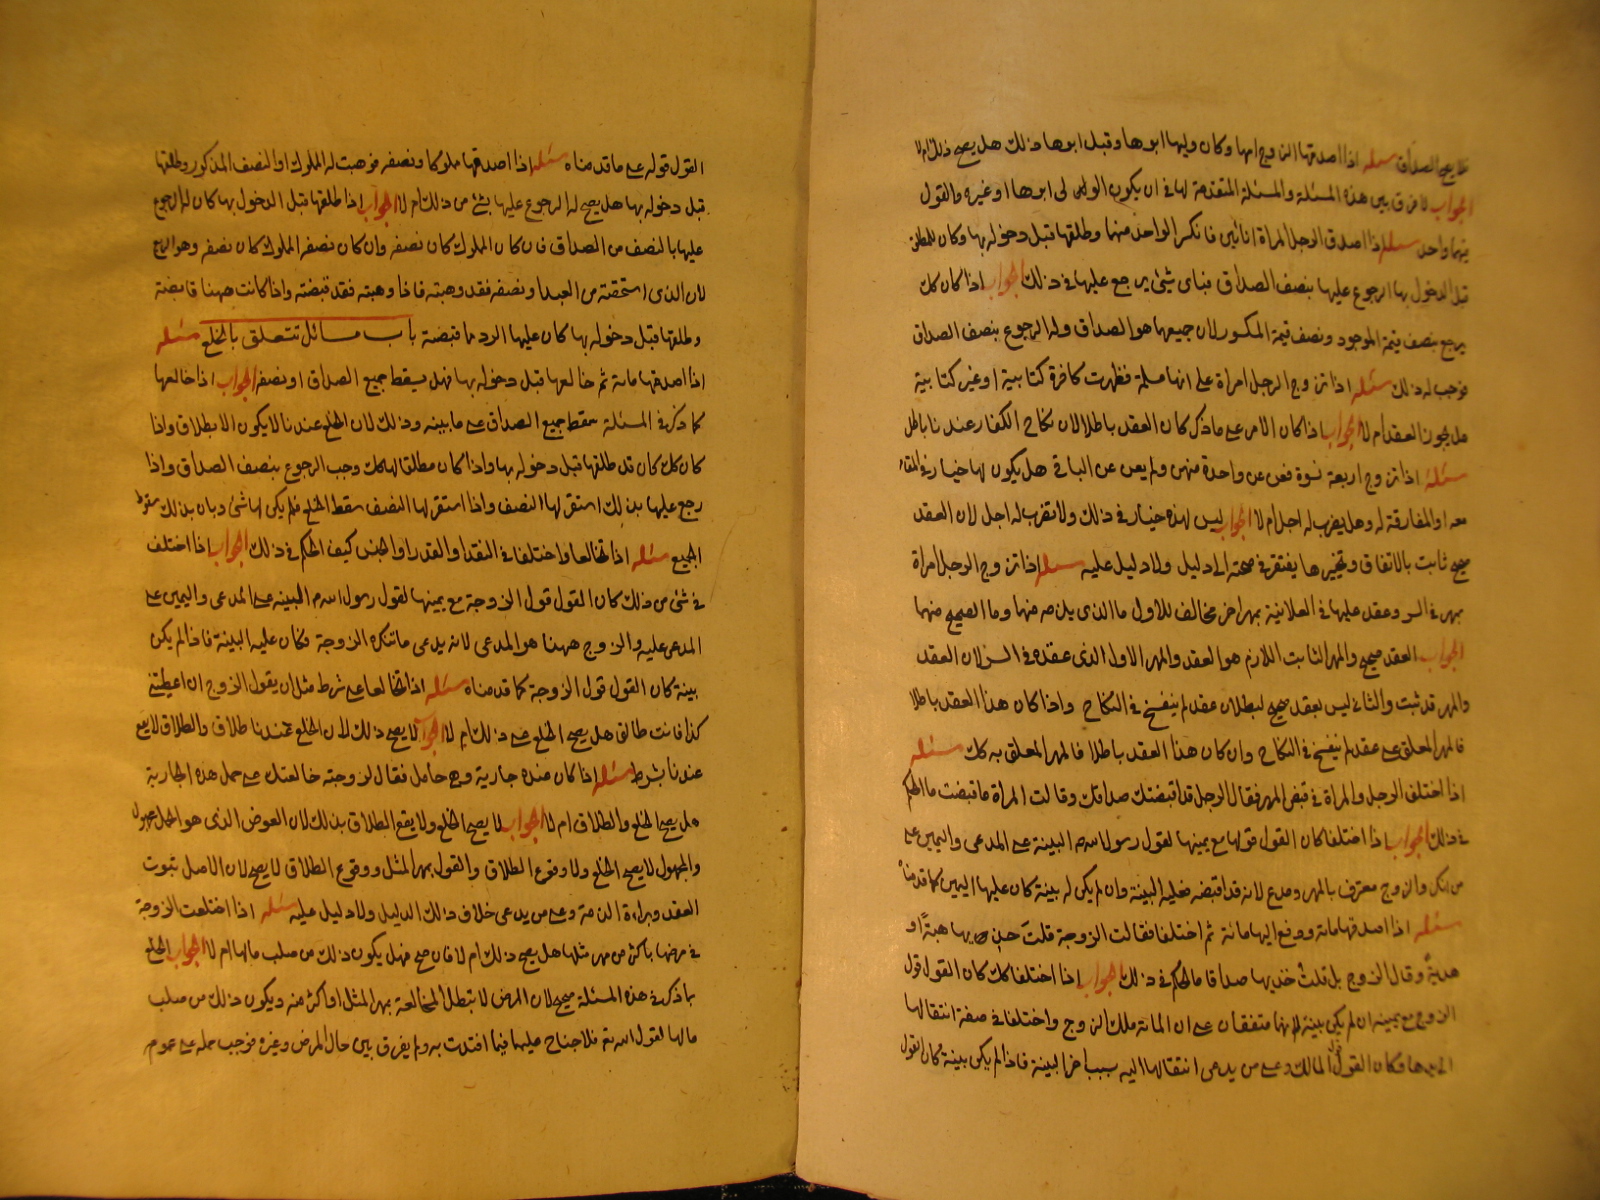 فلا يصح الصداق مسئلة اذا اصدقها ان زوج امها وكان وليها ابوها وقبل ابوها ذلك هل يصح ذلك ام لا
الجواب لا فرق بين هذه المسئلة والمسئلة المتقدمة لها في ان يكون الولي لي ابوها او غيره والقول
فيهما واحد مسئلة اذا اصدق الرجل المراة انائين فانكسر الواحد منهما وطلقها قبل دخوله بها وكان للمطلق
قبل الدخول بها الرجوع عليها بنصف الصداق فباى شيئ يرجع عليها في ذلك الجواب اذا كان كك
يرجع بنصف قيمة الموجود ونصف قيمة المكسور لان جميعها هو الصداق وله الرجوع بنصف الصداق
فوجب له ذلك مسئلة اذا تزوج الرجل امراة على انها مسلمة فظهرت كافرة كتابية او غير كتابية
هل يجوز العقد ام لا الجواب اذا كان الامر على ما ذكر كان العقد باطلا لان نكاح الكفار عندنا باطل
مسئلة اذا تزوج اربعة نسوة فعن عن واحدة منهن ولم يعن عن الباقي هل يكون لها خيار في المقام
معه او المفارقة له وهل يضرب له اجل ام لا الجواب ليس لهذه خيار في ذلك ولا تضرب له اجل لان العقد
صحيح ثابت بالاتفاق وتخيرها يفتقر في صحته الى دليل ولا دليل عليه مسئلة اذا تزوج الرجل امراة
بمهر في السر وعقد عليها في العلانية بمهر اخر مخالف للاول ما الذى يلزمه منهما وما الصحيح منهما
الجواب العقد صحيح والمهر الثابت اللازم هو العقد والمهر الاول الذى عقده في السر لان العقد
والمهر قد ثبت والثاني ليس بعقد صحيح لبطلان عقد لم ينفسخ في النكاح واذا كان هذا العقد باطلا
فالمهر المعلق على عقد لم ينفسخ في النكاح وان كان هذا العقد باطلا فالمهر المعلق به كك مسئلة
اذا اختلف الرجل والمراة في قبض المهر فقال الرجل قد اقبضتك صداقك وقالت المراة ما قبضت ما الحكم
في ذلك الجواب اذا اختلفا كان القول قولها مع يمينها لقول رسول الله صم البينة على المدعى واليمين على
من انكر والزوج معترف بالمهر ومدع لانه قد اقبضه فعليه البينة وان لم يكن له بينة كان عليها اليمين كما قدمناه
مسئلة اذا اصدقها مائة ودفع اليها مائة ثم اختلفا فقالت الزوجة قلت حين بها هبة او
هدية وقال الزوج بل قلت خذيها صداقا ما الحكم في ذلك الجواب اذا اختلفا كك كان القول قول
الزوج مع يمينه ان لم يكن بينة لانهما متفقان على ان المائة ملك الزوج واختلفا في صفة انتقالها
الى يدها وكان القول قول المالك وعلى من يدعى انتقالها اليه بسبب اخر البينة فاذا لم يكن بينة وكان القول
القول قوله على ما قدمناه مسئلة اذا اصدقها مملوكا ونصفه فوهبت له المملوك او النصف المذكور وطلقها
قبل دخوله بها هل يصح له الرجوع عليها بشئ من ذلك ام لا الجواب اذا طلقها قبل الدخول بها كان له الرجوع
عليها بالنصف من الصداق فان كان المملوك كان نصفه وان كان نصف المملوك كان نصفه وهو الربع
لان الذى استحقته من العبد او نصفه فقد وهبته فاذا وهبته فقد قبضته واذا كانت ههنا قابضة
وطلقها قبل دخوله بها كان عليها الرد ما قبضته باب مسائل تتعلق بالخلع مسئلة
اذا اصدقها مائة ثم خالعها قبل دخوله بها فهل يسقط جميع الصداق او نصفه الجواب اذا خالعها
كما ذكر في المسئلة سقط جميع الصداق على ما بينه وذلك لان الخلع عندنا لا يكون الا بطلاق واذا
كان كك كان قد طلقها قبل دخوله بها واذا كان مطلقا لها كك وجب الرجوع بنصف الصداق واذا
رجع عليها بذلك استقر لها النصف واذا استقر لها النصف سقط الخلع فلم يكن لها شئ وبان بذلك سقوط
الجميع مسئلة اذا تخالعا واختلفا في النقد او القدر او الجنس كيف الحكم في ذلك الجواب اذا اختلف
في شئ من ذلك كان القول قول الزوجة مع يمينها لقول رسول الله صم البينه على المدعى واليمين على
المدعى عليه والزوج ههنا هو المدعى لانه يدعى ما تنكره الزوجة فكان عليه البينة فاذا لم يكن
بينة كان القول قول الزوجة كما قدمناه مسئلة اذا تخالعا على شرط مثل ان يقول الزوج ان اعطيتني
كذا فانت طالق هل يصح الخلع على ذلك ام لا الجواب لا يصح ذلك لان الخلع عندنا طلاق والطلاق لا يقع
عندنا بشرط مسئلة اذا كان عنده جارية وهي حامل فقال لزوجته خالعتك على حمل هذه الجارية
هل يصح الخلع والطلاق ام لا الجواب لا يصح الخلع ولا يقع الطلاق بذلك لان العوض الذى هو الحمل مجهول
والمجهول لا يصح الخلع ولا وقوع الطلاق والقول بمهر المثل ووقوع الطلاق لا يصح لان الاصل ثبوت
العقد وبراءة الذمة وعلى من يدعى خلاف ذلك الدليل ولا دليل عليه مسئلة اذا اختلعت الزوجة
في مرضها باكثر من مهر مثلها هل يصح ذلك ام لا فان صح فهل يكون ذلك من صلب مالها ام لا الجواب الخلع
بما ذكر في هذه المسئلة صحيح لان المرض لا تبطل المخالعة بمهر المثل او اكثر منه ويكون ذلك من صلب
مالها لقول الله تع فلا جناح عليهما فيما افتدت به ولم يفرق بين حال المرض وغيره فوجب حمله على عموم